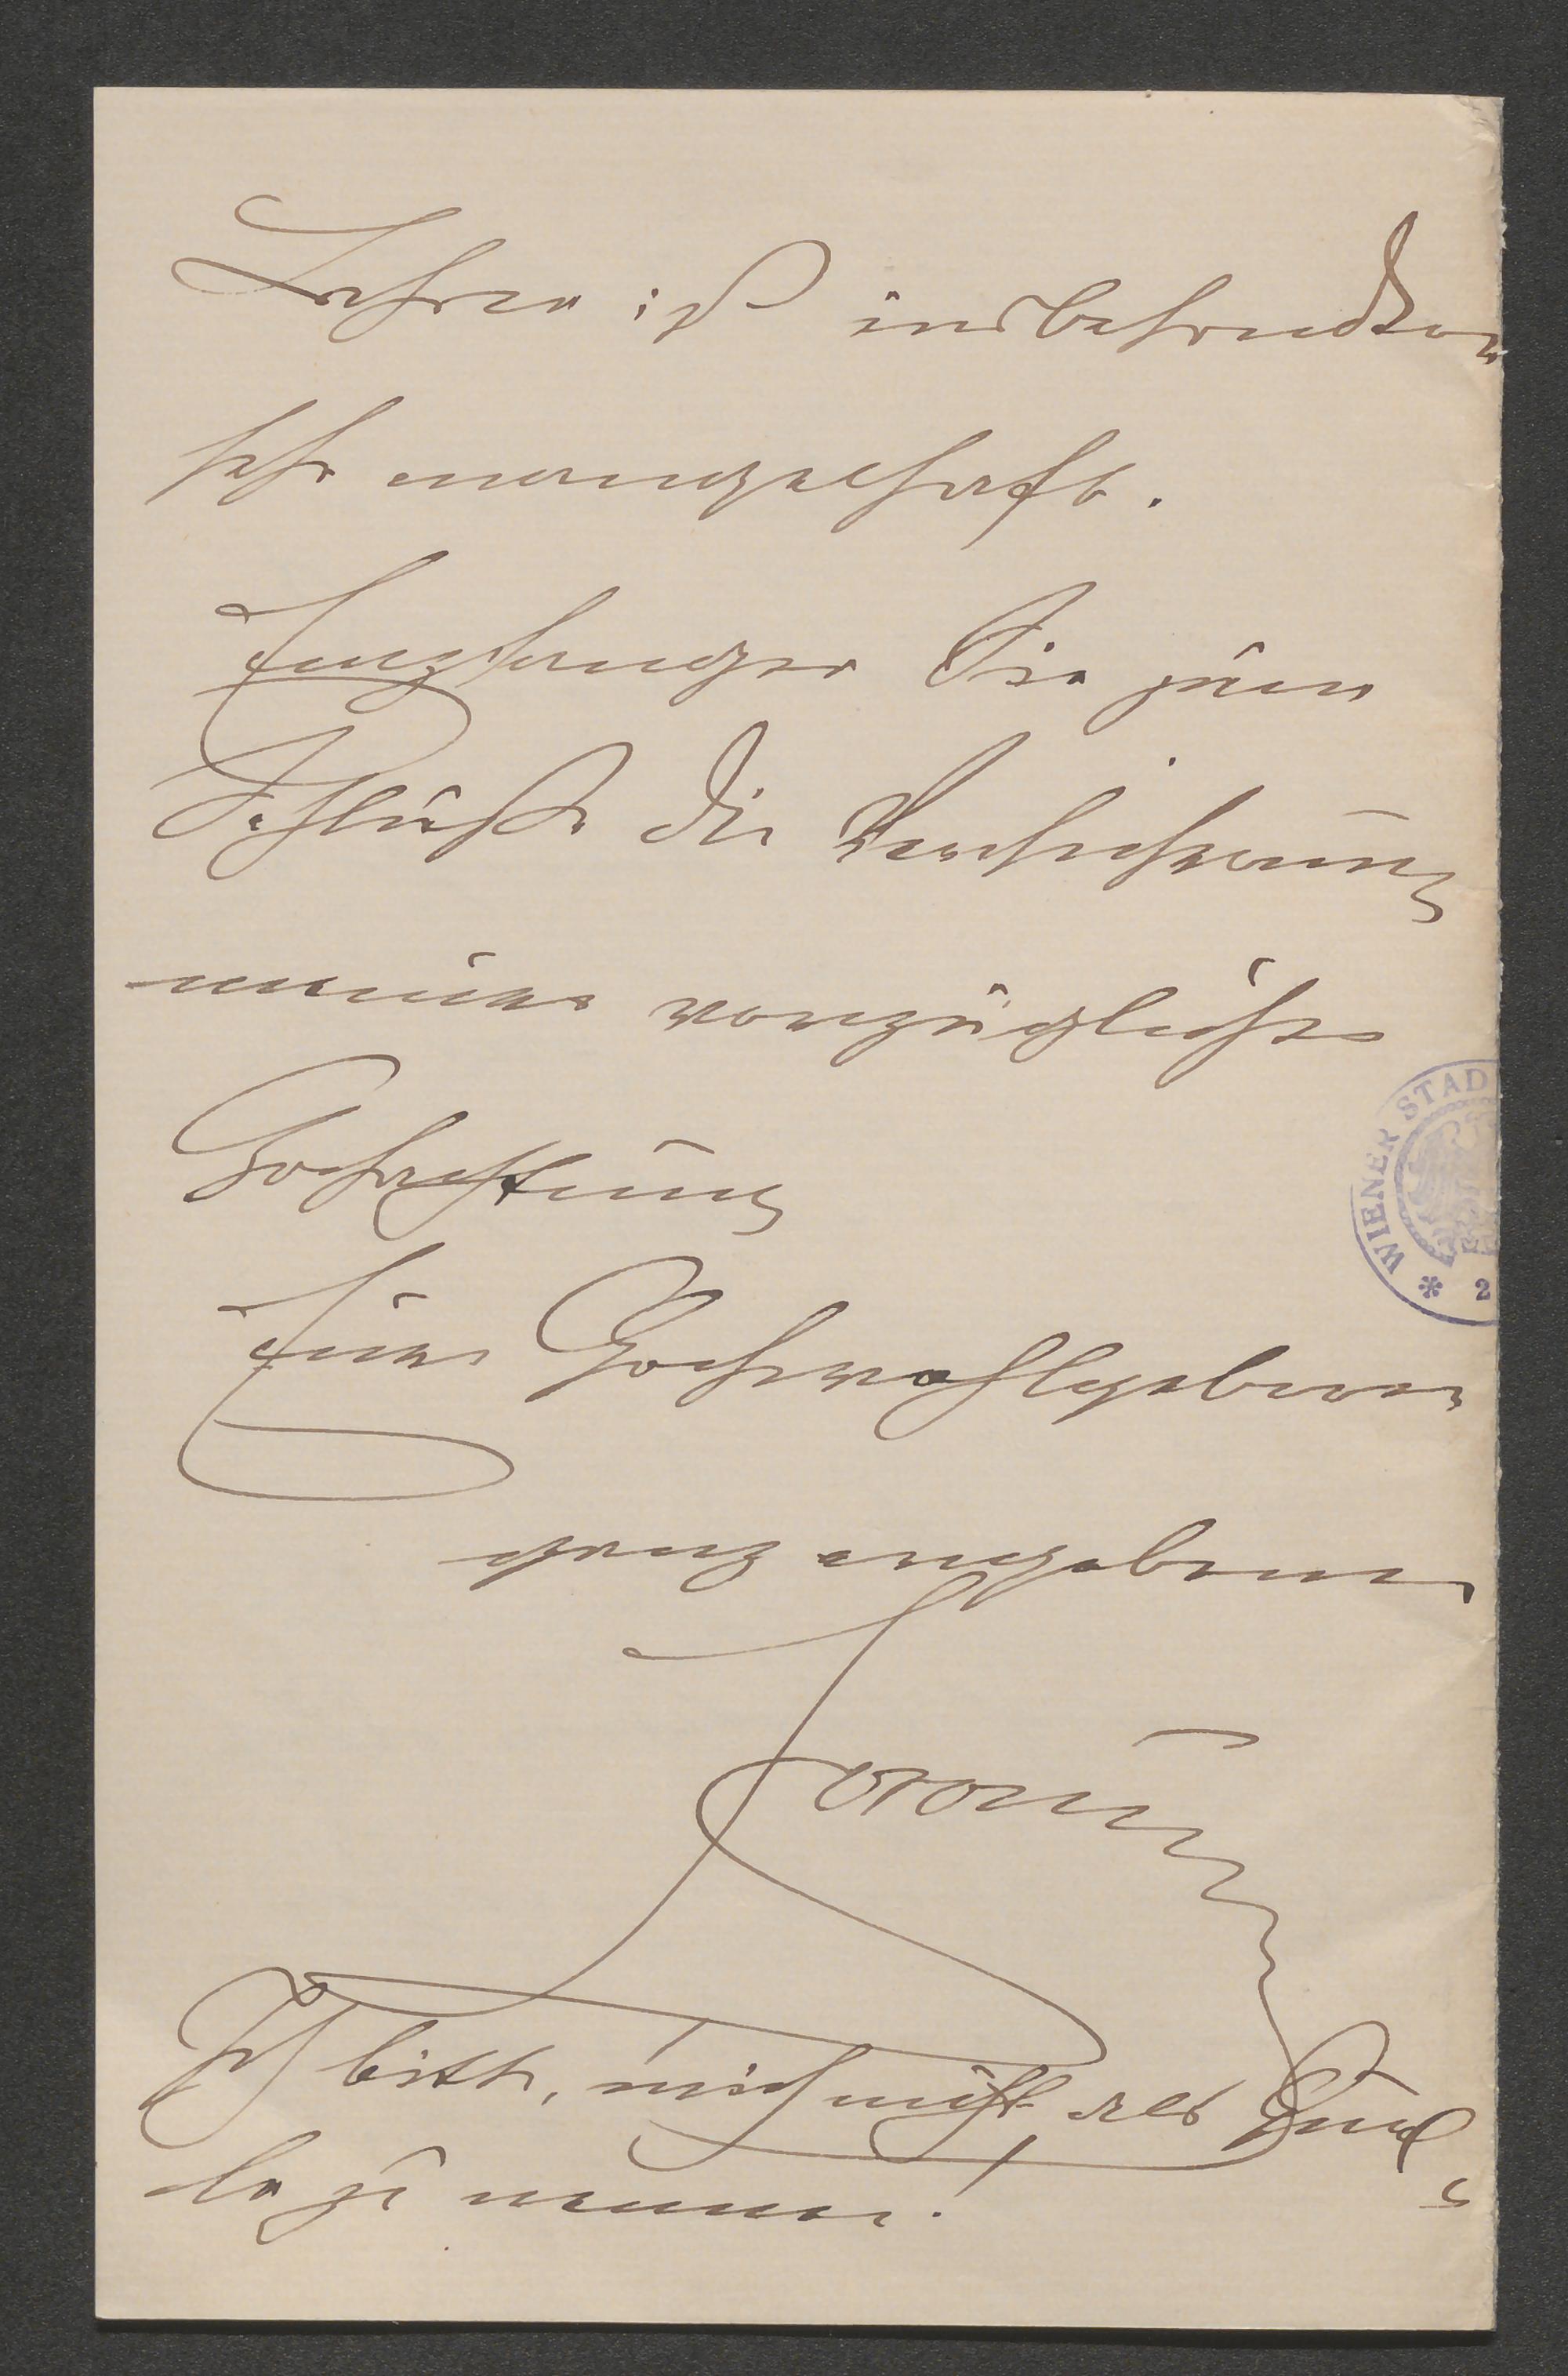 Lehren ist insbesondere
sehr mangelhaft.
Empfangen Sie zum
Schluße die Versicherung
meiner vorzüglichen
Hochachtung
Euer Hochwohlgeboren
ganz ergebener
Ich bitte, mich nicht als Quel-
le zu nennen!
WIENER STAD
* 2